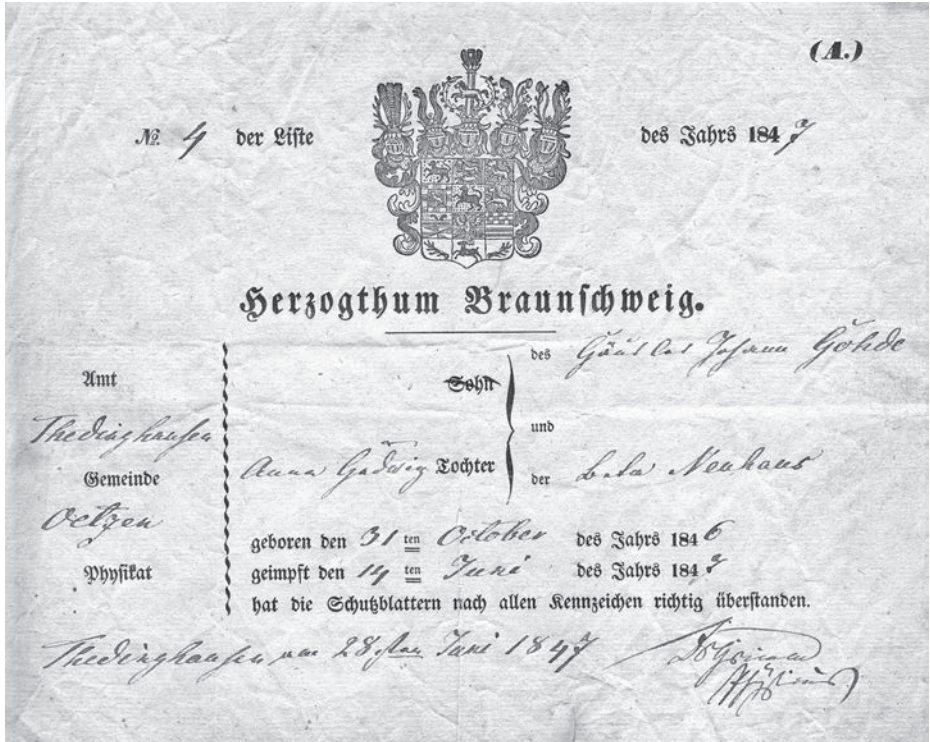 (A.)
No. 4 der Liste
des Jahrs 1847
Herzogthum Braunschweig.
Amt
Thedinghausen
Gemeinde
Oetzen
Physikat
Sohn
Anna Hedwig Tochter
des Häusler Johann Göhde
und
der Beta Neuhaus
geboren den 31 ten October des Jahrs 1846
geimpft den 14 ten Juni des Jahrs 1847
hat die Schutzblattern nach allen Kennzeichen richtig überstanden.
Thedinghausen am 28sten Juni 1847
Physicus